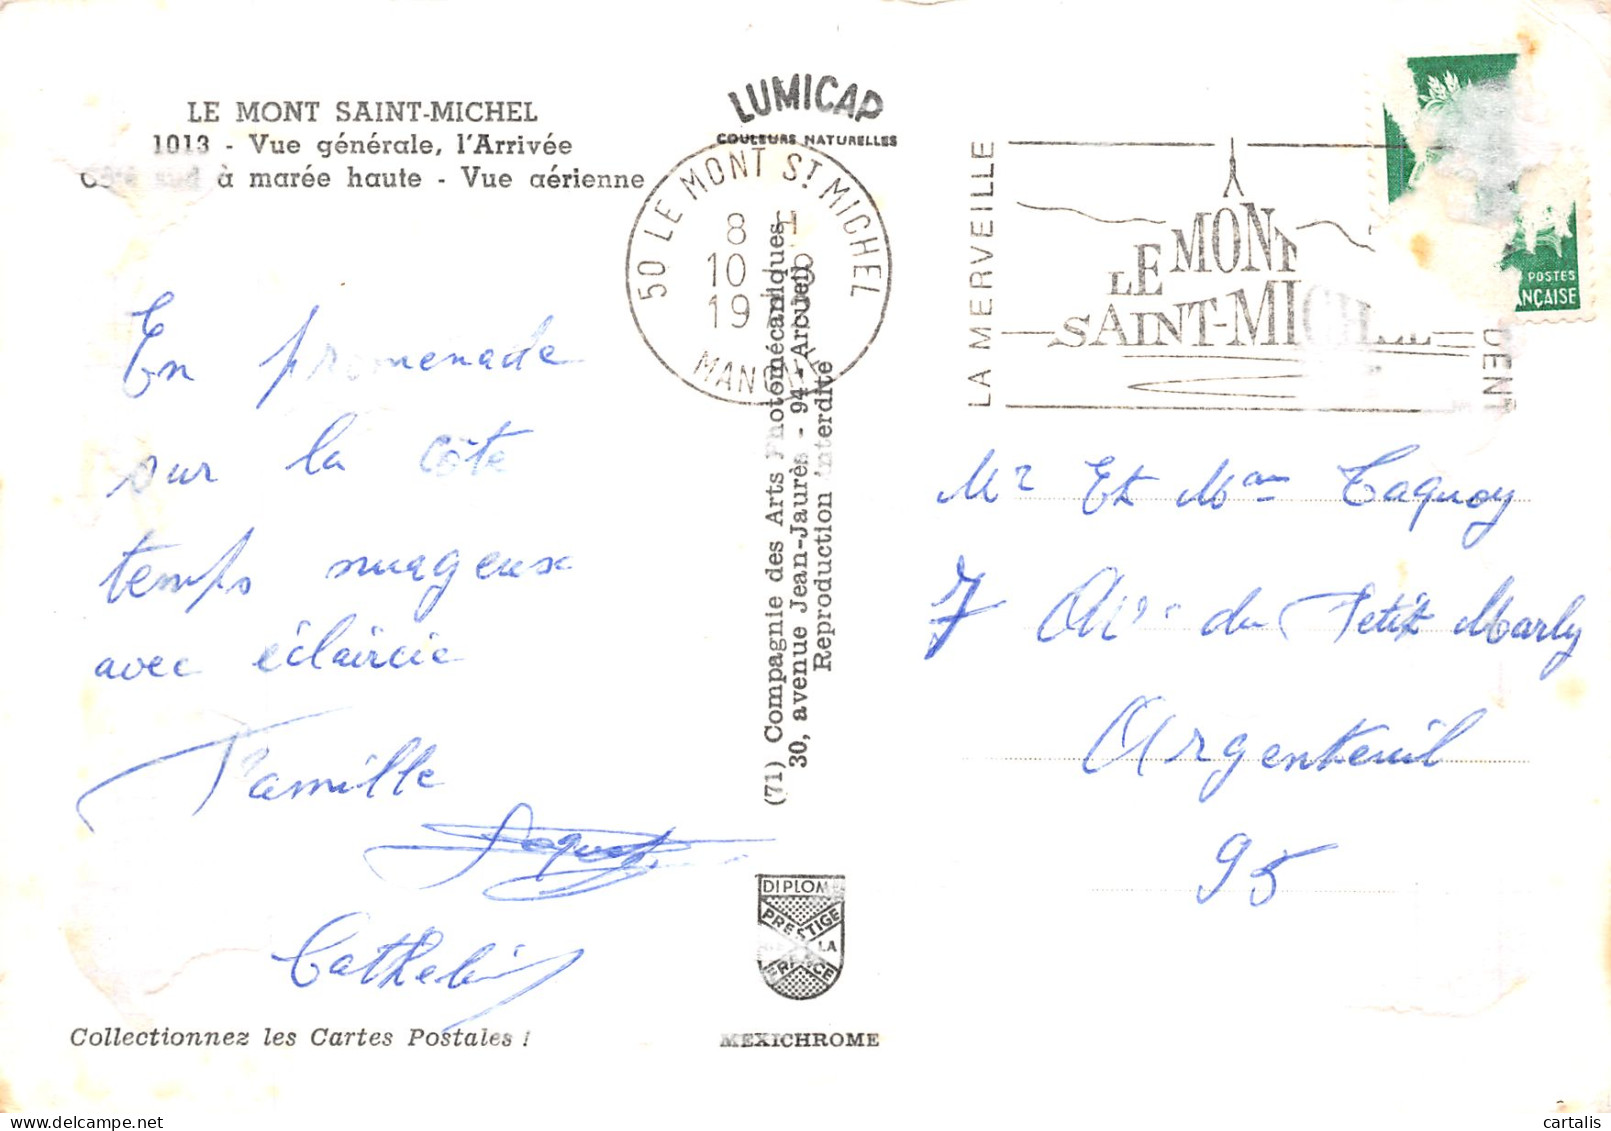 LE MONT SAINT-MICHEL
1013 - Vue générale, l'Arrivée
Côté sud à marée haute - Vue aérienne
En promenade
sur la côte
temps nuageux
avec éclaircie
Famille
Collectionnez les Cartes Postales !
LUMICAP
COULEURS NATURELLES
50 LE MONT ST MICHEL
8 H
10
19
MANCHE
(71) Compagnie des Arts Photomécaniques
30, avenue Jean-Jaurès - 94-Arcueil
Reproduction interdite
DIPLOME
PRESTIGE
DE LA
FRANCE
MEXICHROME
LA MERVEILLE
LE MONT
SAINT-MICHEL
POSTES
Mr Et Mme Taquoy
7 Ave du Petit Marly
Argenteuil
95
cartalis